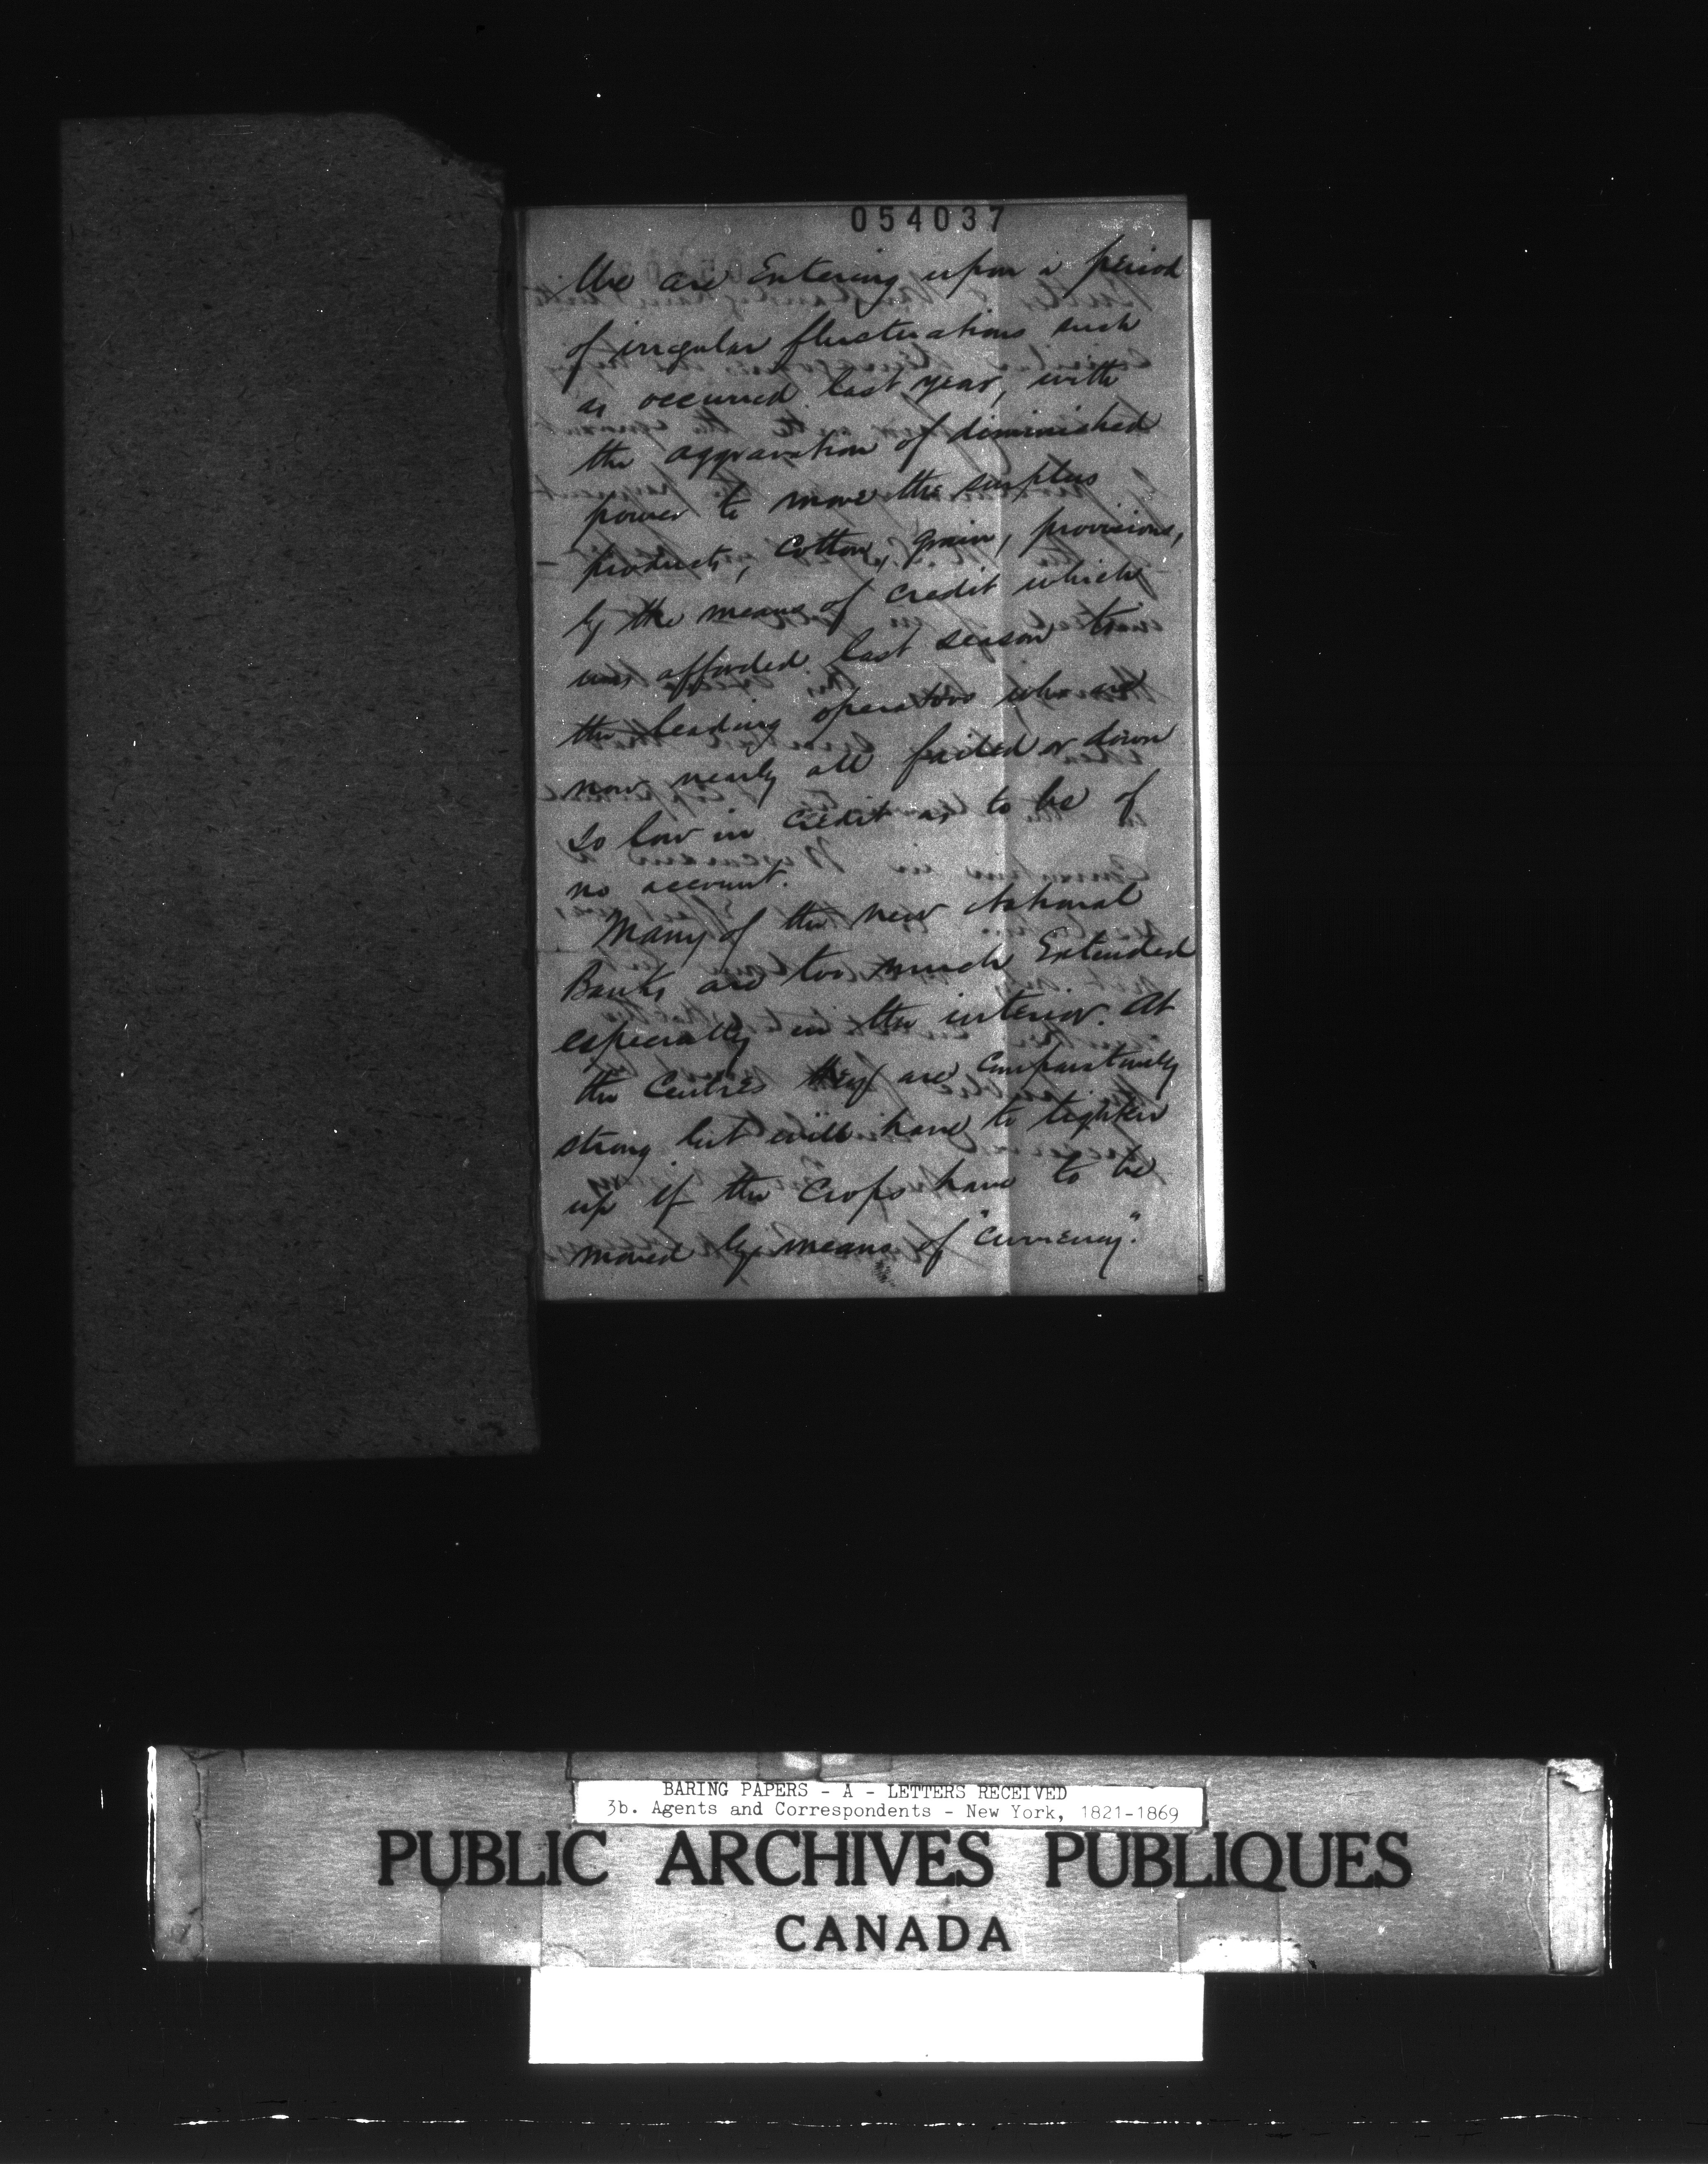 054037
We are Entering upon a period
of irregular fluctuations such
as occurred last year, with
the aggravation of diminished
power to move the surplus
products, Cotton, grain, provisions,
by the means of credit which
was afforded last season
the leading operators who are
now nearly all failed or down
so low in credit as to be of
no account.
Many of the new National
Banks are too much Extended
especially in the interior. At
the Centres they are Comparatively
strong but will have to tighten
up if the Crops have to be
moved by means of "Currency".
BARING PAPERS - A - LETTERS RECEIVED
3b. Agents and Correspondents - New York, 1821-1869
PUBLIC ARCHIVES PUBLIQUES
CANADA